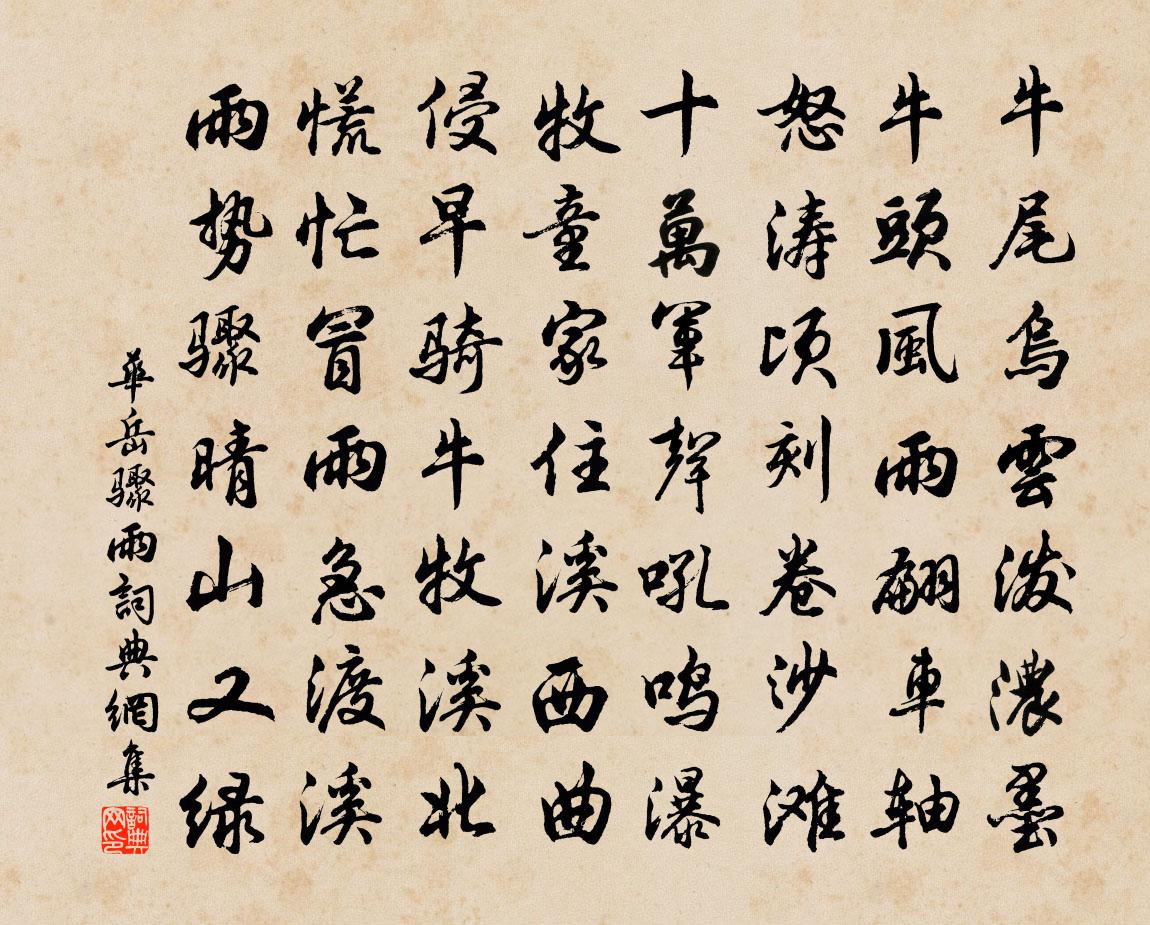 牛尾烏雲潑濃墨
牛頭風雨翻車軸
怒濤頃刻卷沙灘
十萬軍聲吼鳴瀑
牧童家住溪西曲
侵早騎牛牧溪北
慌忙冒雨急渡溪
雨勢驟晴山又綠
華岳驟雨詞典網集
詞典网印